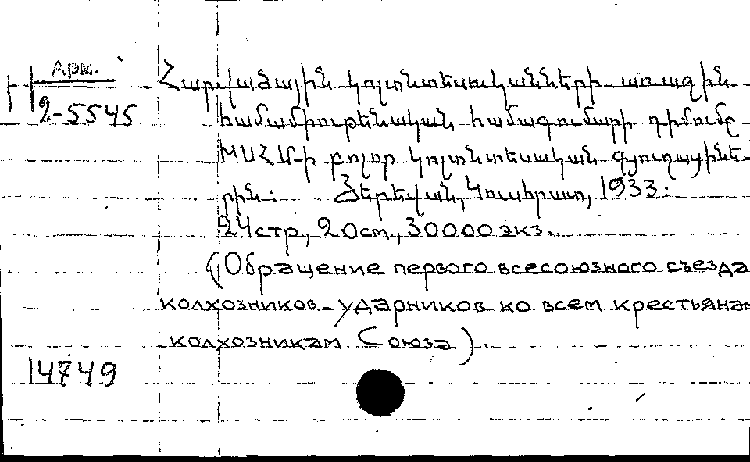 Арм.
2-5545
Հարվածային կոլտնտեսականների առաջին
համամիութենական համագումարի դիմումը
ԽՍՀՄ-ի բոլոր կոլտնտեսական գյուղացինե-
րին: Յերեվան, Կուսհրատ, 1933:
24 стр, 20 см, 30000 экз.
(Обращение первого всесоюзного съезда
колхозников-ударников ко всем крестьянам
колхозникам Союза).
14749